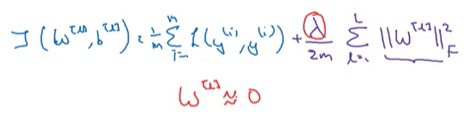 J(w^[l], b^[l]) = 1/m Σ_{i=1}^{m} L(y^(i), y^(i)) + λ/2m Σ_{l=1}^{L} ||w^[l]||²_F
w^[l] ≈ 0